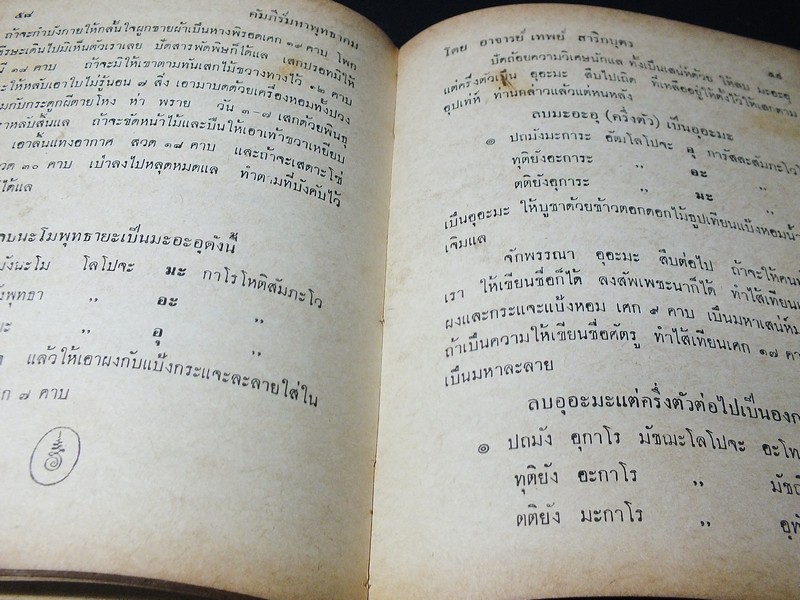 ๕๘ คัมภีร์มหาพุทธาคม
ถ้าจะกำบังกายให้กลั้นใจผูกชายผ้าเป็นหางพิรอดเศก ๑๙ คาบ โพก
ศีรษะเดินไปมิเห็นตัวเราเลย ปัดสารพัดพิษก็ได้แล เสกปรอทมิให้
๑๘ คาบ ถ้าจะมิให้เขาตามทันเสกไม้ขวางทางไว้ ๑๒ คาบ
จะให้หลับเอาใบไม้รู้นอน ๗ สิ่ง เอามาบดด้วยเครื่องหอมทั้งปวง
กับกระดูกผีตายโหง ทำ พราย วัน ๓-๗ เสกด้วยพินธุ
หลับสิ้นแล ถ้าจะขัดหน้าไม้และปืนให้เอาเท้าขวาเหยียบ
เอาลิ้นแทงอากาศ สวด ๑๘ คาบ และถ้าจะเสดาะโซ่
๓๐ คาบ เป่าลงไปหลุดหมดแล ทำตามที่บังคับไว้
ได้แล
ลบนะโมพุทธายะเป็นมะอะอุดังนี้
นะโม โลโปจะ มะ กาโรโหติสัมภะโว
พุทธา ,, อะ ,,
,, อุ ,,
แล้วให้เอาผงกับแป้งกระแจะละลายใส่ใน
๗ คาบ
โดย อาจารย์ เทพย์ สาริกบุตร ๕๙
ปิดถ้อยความวิเศษนักแล ทั้งเป็นเสน่ห์ด้วย ให้ลบ มะอะอุ
แต่ครึ่งตัวเป็น อุอะมะ สืบไปเถิด ที่เหลืออยู่ให้ตั้งไว้ให้เสกตาม
อุปเท่ห์ ท่านกล่าวแล้วแต่หนหลัง
ลบมะอะอุ (ครึ่งตัว) เป็นอุอะมะ
๑ ปถมังมะการะ อัฒโลโปจะ อุ การัสสะสัมภะโว
ทุติยังอะการะ ,, อะ ,,
ตติยังอุการะ ,, มะ ,,
เป็นอุอะมะ ให้บูชาด้วยข้าวตอกดอกไม้ธูปเทียนแป้งหอมน้ำ
เจิมแล
จักพรรณา อุอะมะ สืบต่อไป ถ้าจะให้คน
เรา ให้เขียนชื่อก็ได้ ลงสัพเพชะนาก็ได้ ทำไส้เทียน
ผงและกระแจะแป้งหอม เศก ๙ คาบ เป็นมหาเสน่ห์
ถ้าเป็นความให้เขียนชื่อศัตรู ทำไส้เทียนเศก ๑๗
เป็นมหาละลาย
ลบอุอะมะแต่ครึ่งตัวต่อไปเป็นองก
๑ ปถมัง อุกาโร มัชฌะโลโปจะ
ทุติยัง อะกาโร ,,
ตติยัง มะกาโร ,,